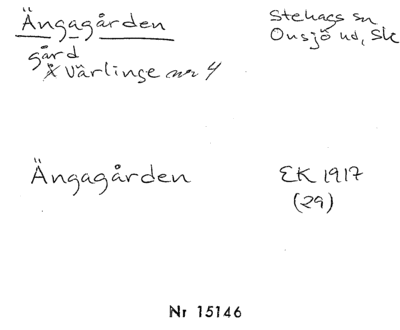 Ängagården
Stehags sn
Onsjö hd, Sk
gård
Å Värlinge nr 4
Ängagården
EK 1917
(29)
Nr 15146